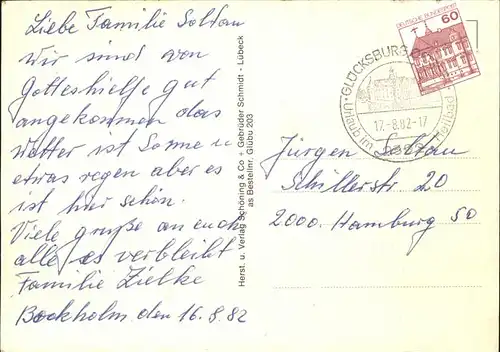 Liebe Familie Soltau
Wir sind von
Gotteshielfe gut
angekommen das
Wetter ist Sonne u
etwas regen aber es
ist hier schön.
Viele gruße an euch
alle es verbleibt
Familie Zielke
Bockholm den 16.8.82
Herst. u. Verlag Schöning & Co + Gebrüder Schmidt - Lübeck
as Bestellnr. Glübu 203
DEUTSCHE BUNDESPOST
60
GLÜCKSBURG
17.-8.82-17
Urlaub im
Heilbad
Jürgen Soltau
Schillerstr. 20
2000. Hamburg 50